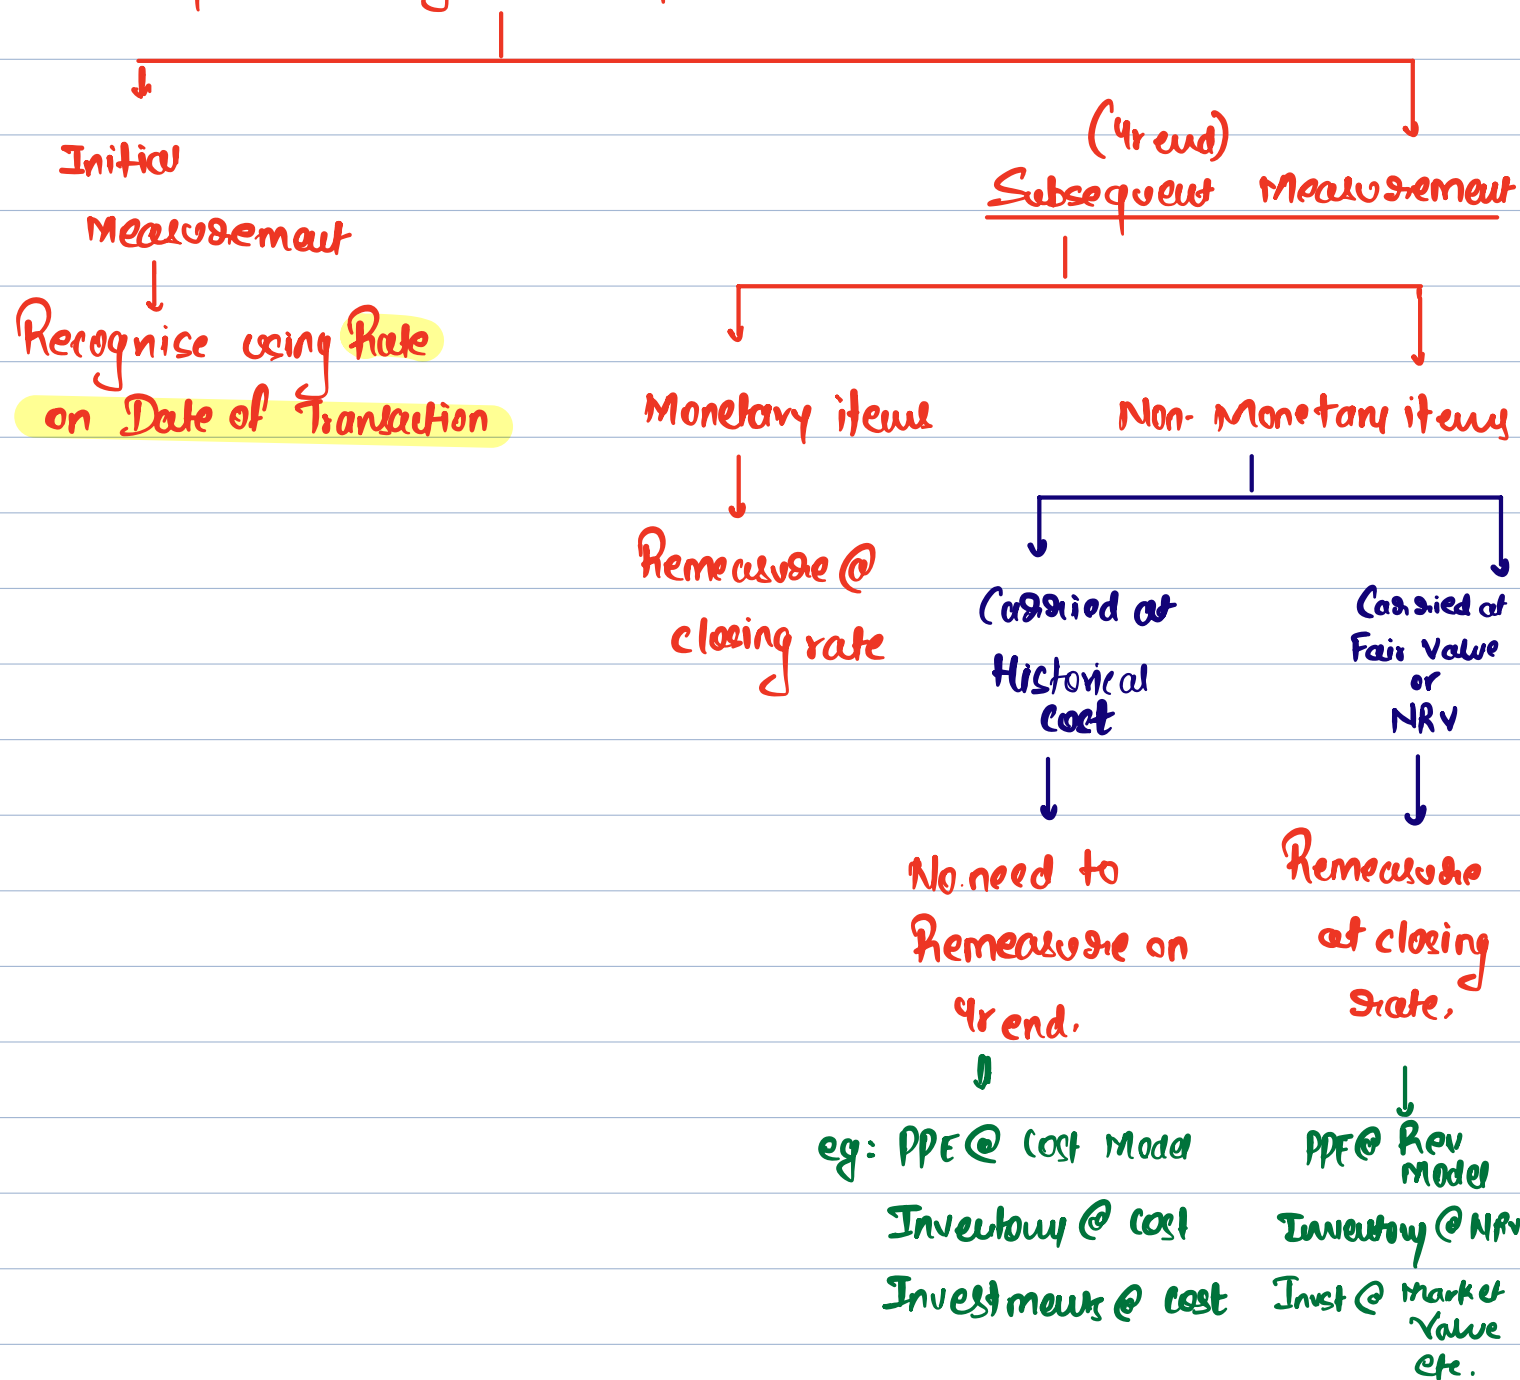 Initial
Measurement
Recognise using Rate
on Date of Transaction
(Yr end)
Subsequent Measurement
Monetary items
Remeasure @
closing rate
Non-Monetary items
Carried at
Historical
cost
No need to
Remeasure on
Yr end.
eg: PPE @ Cost Model
Inventory @ cost
Investments @ cost
Carried at
Fair Value
or
NRV
Remeasure
at closing
rate.
PPE @ Rev
Model
Inventory @ NRV
Invst @ Market
Value
etc.